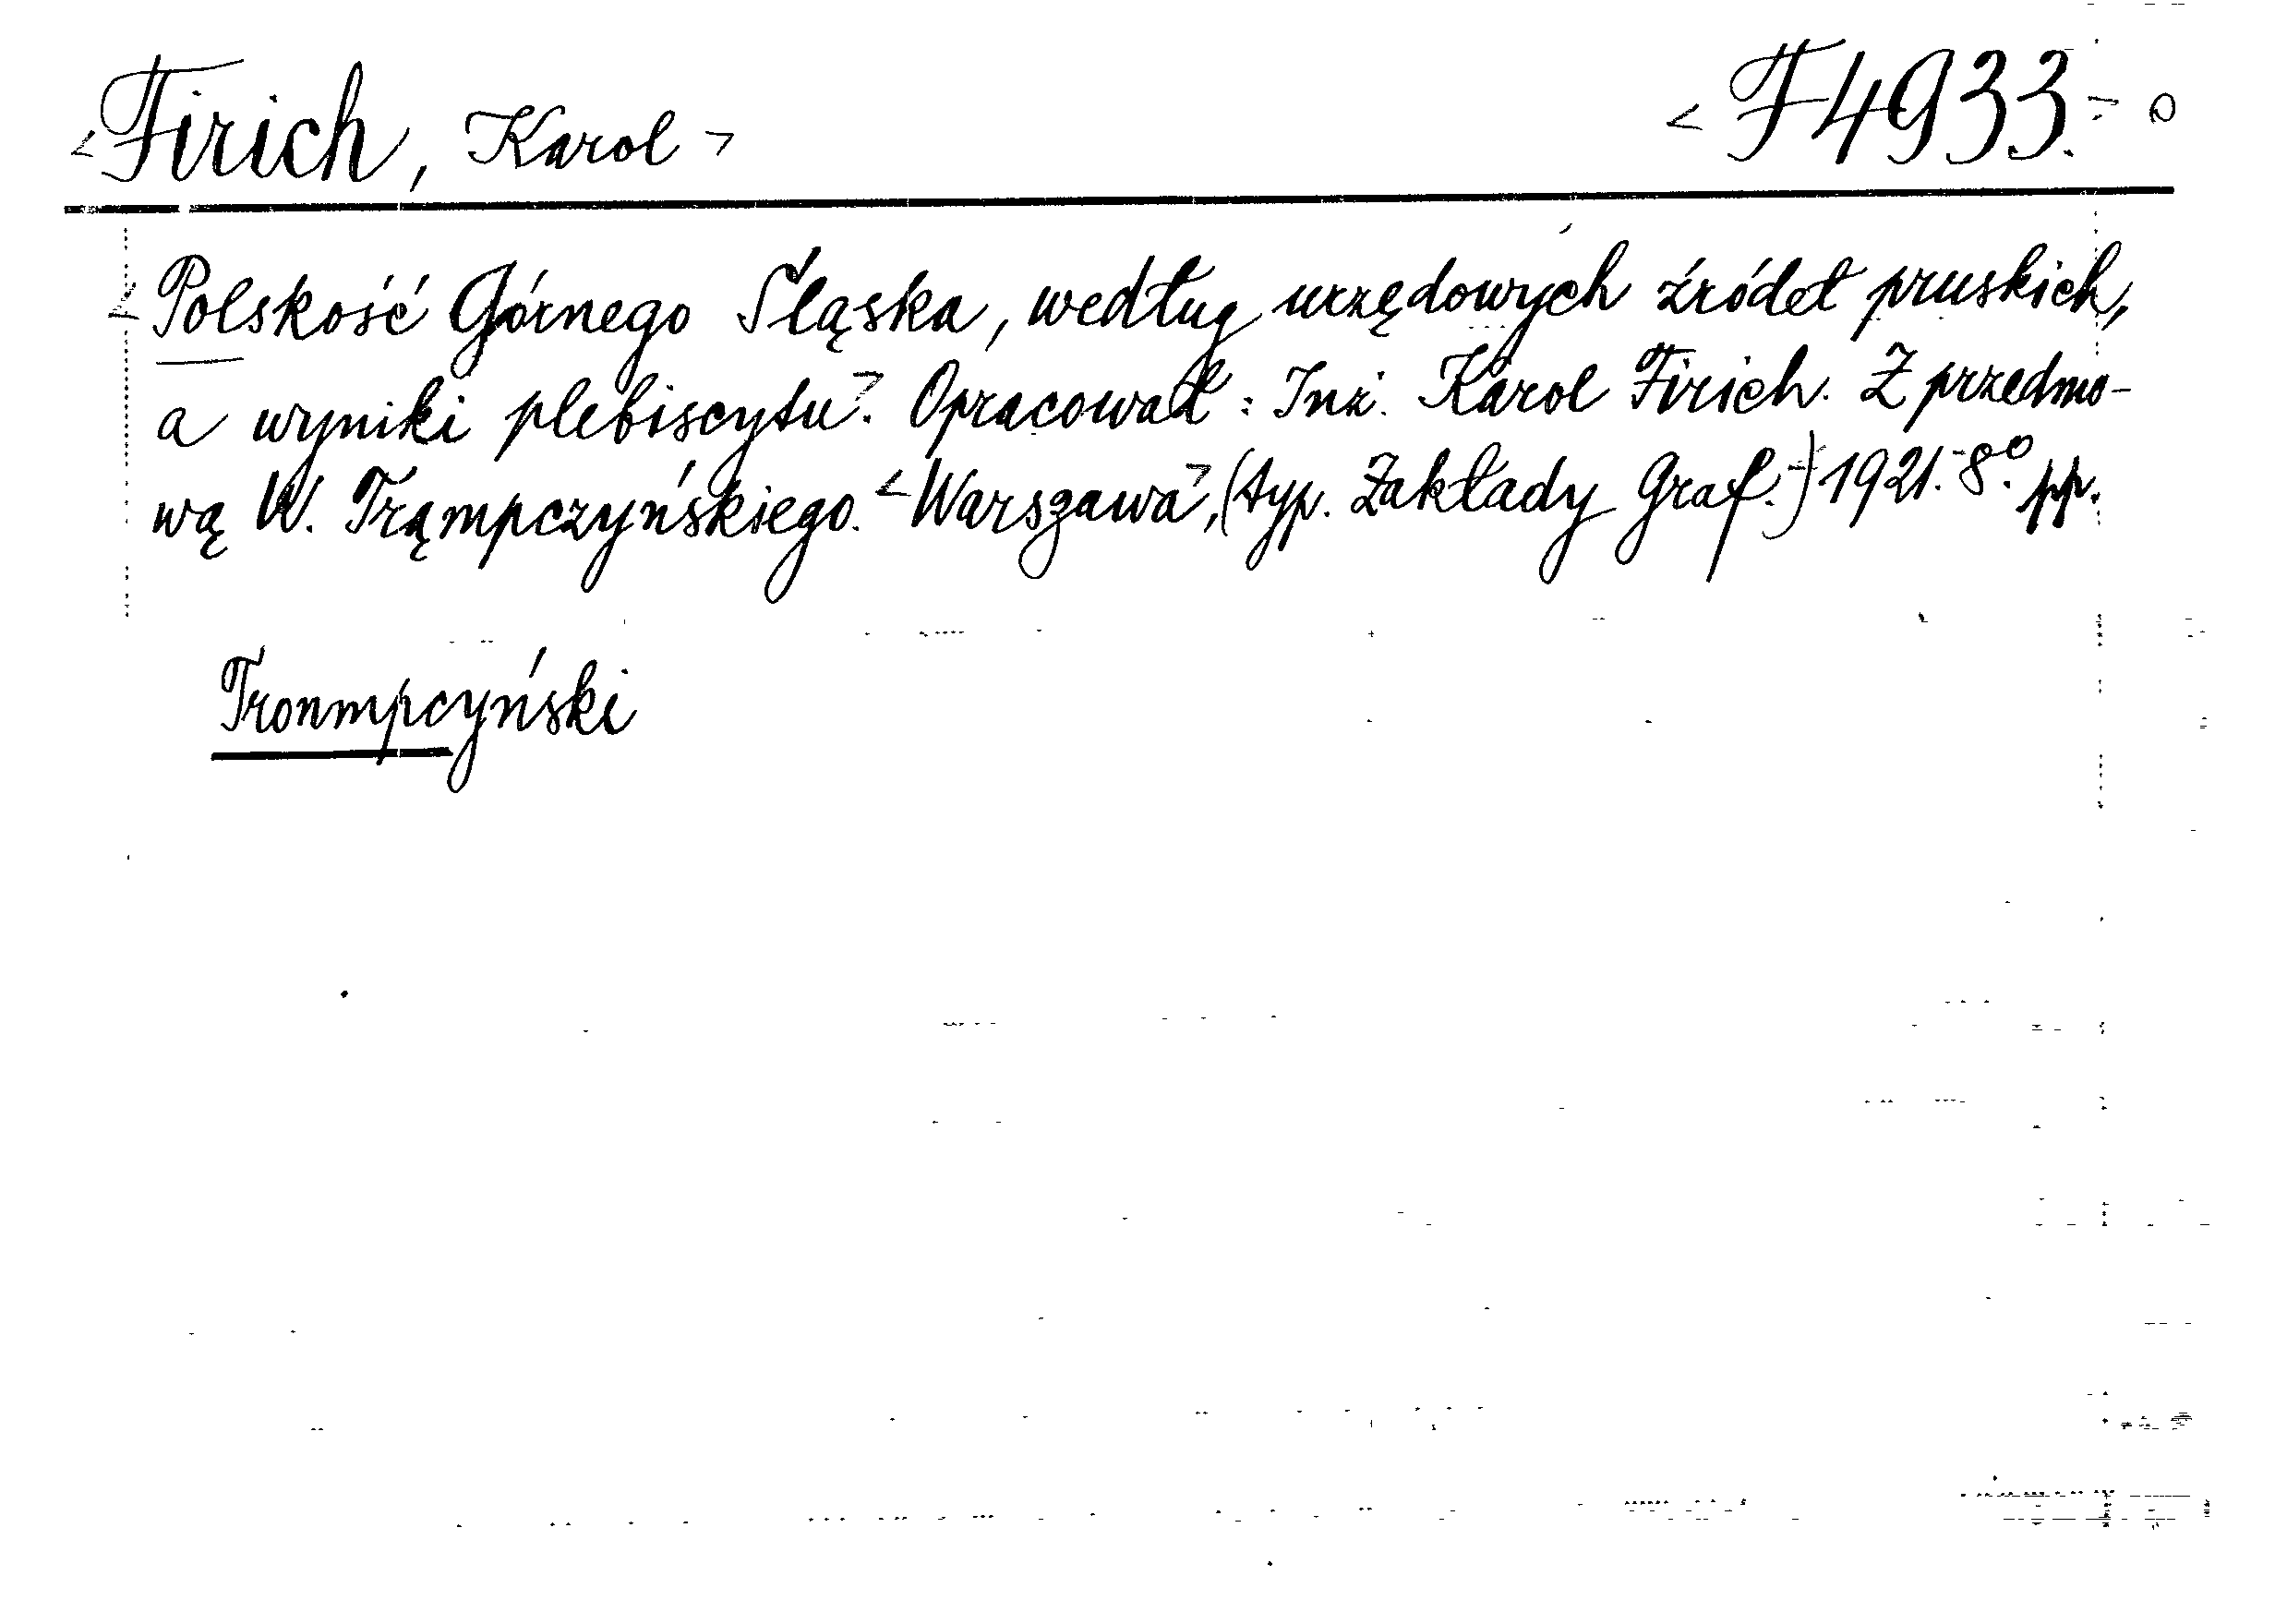 <Firich, Karol> <F4933.> o
<Polskość Górnego Śląska, według urzędowych źródeł pruskich,
a wyniki plebiscytu>. Opracował: Inż. Karol Firich. Z przedmo-
wą W. Trąmpczyńskiego. <Warszawa>, (typ. Zakłady Graf.) 1921. 8º. pp.
Tronmpcyński